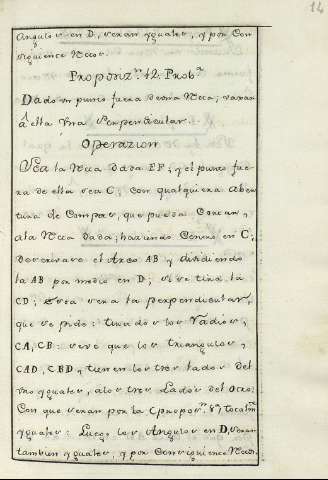 14
Angulos en D, seran yguales, y por Con
siguiente Rectos.
Proposiz.n 12. Prob.a
Dado vn punto fuera de vna Recta;
â ella vna Perpendicular.
Operazion
Sea la Recta dada EF; y el punto fue
ra de ella sea C; con qualquiera aber
tura de Compas, que pueda Cortar,
ala Recta dada; haziendo Centro en C;
descrivase el Arco AB y dividiendo
la AB por medio en D; si se tira la
CD; esta sera la perpendicular,
que se pide: tirados los Radios,
CA, CB: se vè que los triangulos,
CAD, CBD, tienen los tres lados del
vno yguales, alos tres Lados del otro;
Con que seran por la (propos.n 8.a) totalm.te
yguales: Luego los Angulos en D, seran
tambien yguales, y por Consiguiente Rectos.